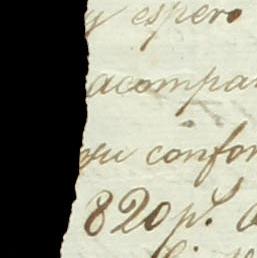 y espero
acompa
su confor
820 p.s